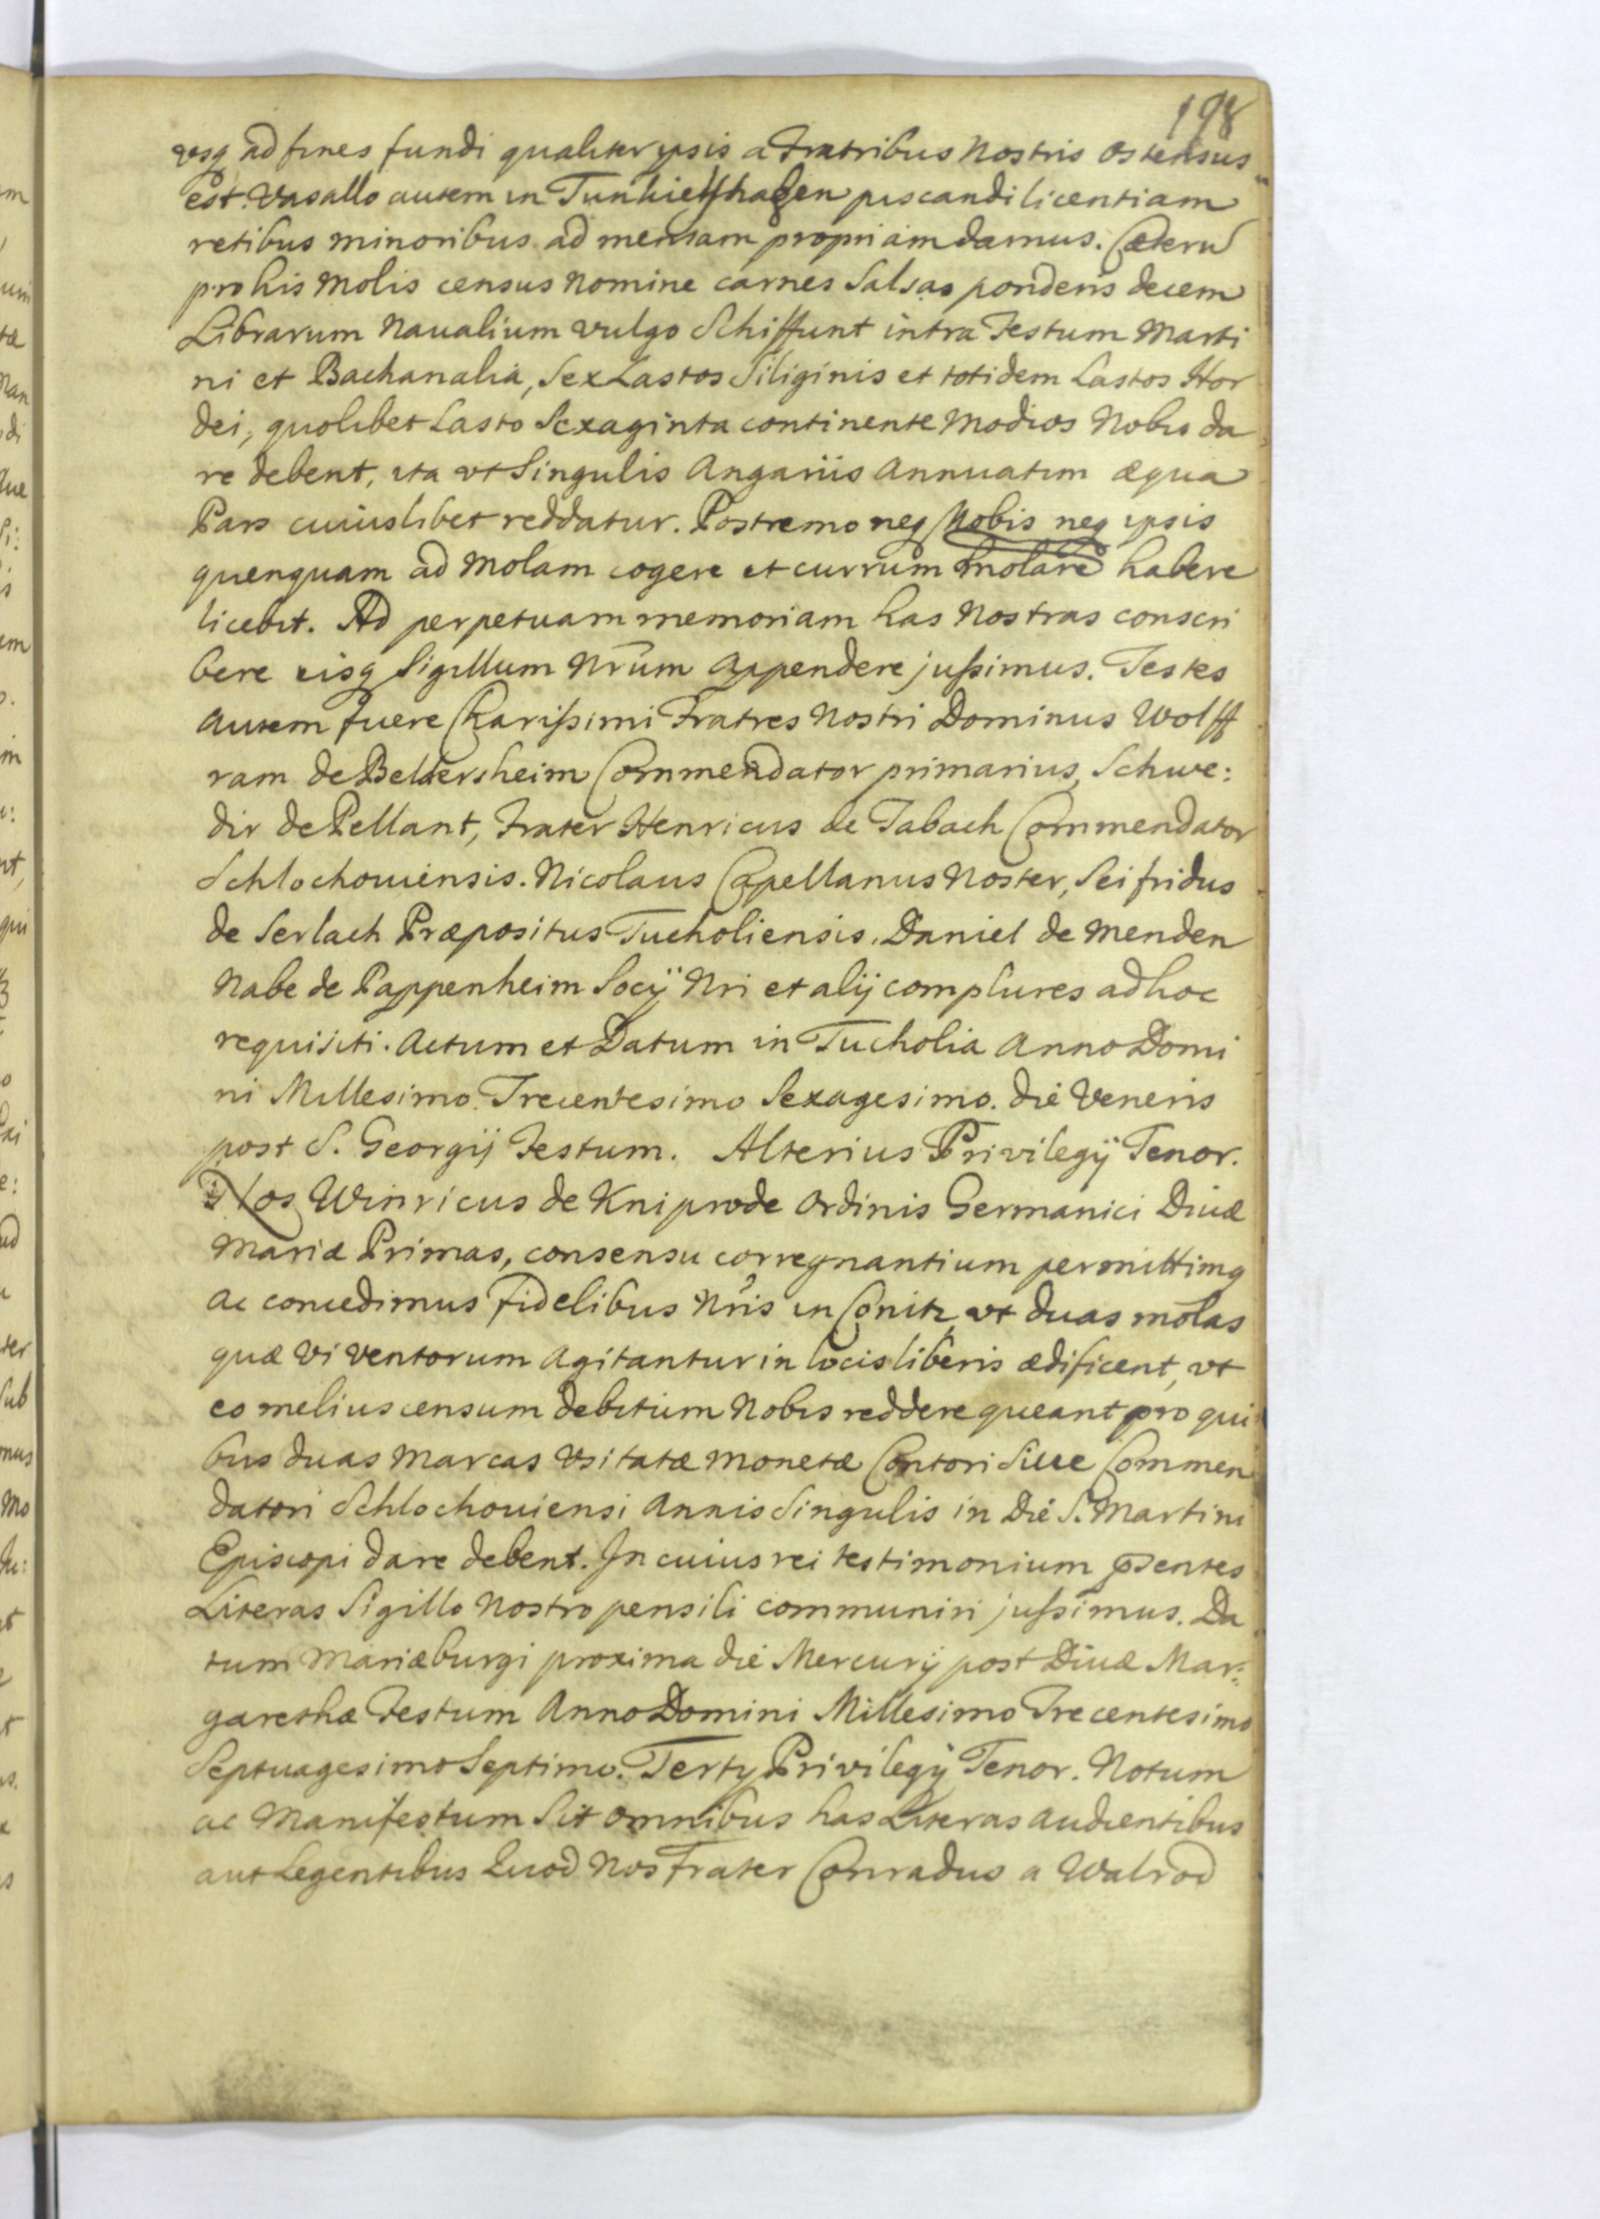 198
vsq ad fines fundi qualiter ipsis a Fratribus Nostris ostensus
est. Vasallo autem in piscandi licentiam
retibus minoribus ad mensam propriam damus. Cæterū
pro his Molis census Nomine carnes Salsas ponderis decem
Librarum Naualium vulgo Schiffunt intra Festum Marti
ni et Bachanalia, Sex Lastos Siliginis et totidem Lastos Hor
dei, quolibet Lasto Sexaginta continente Modios Nobis da
re debent, ita vt Singulis Angariis Annuatim æqua
Pars cuiuslibet reddatur. Postremo neq Nobis neq ipsis
quenquam ad Molam cogere et currum molarē habere
licebit. Ad perpetuam memoriam has Nostras conscri
bere eisq Sigillum Nrūm Appendere jussimus. Testes
Autem fuere Charissimi Fratres Nostri Dominus Wolff
ram de Beldersheim Commendator primarius, Schwe:
dir de Pellant, Frater Henricus de Tabach Commendator
Schlochouiensis. Nicolaus Capellanus Noster, Seifridus
de Serlach Præpositus Tucholiensis. Daniel de Menden
Nabe de Pappenheim Socÿ Nri et alij complures ad hoc
requisiti. Actum et Datum in Tucholia Anno Domi
ni Millesimo Trecentesimo Sexagesimo. die Veneris
post S. Georgij Festum. Alterius Privilegÿ Tenor.
Nos Winricus de Kniprode Ordinis Germanici Diuæ
Mariæ Primas, consensu corregnantium permittimq
Ac concedimus Fidelibus Nr̃is in Conitz, vt duas molas
quæ vi ventorum Agitantur in locis liberis ædificent, vt
eo melius censum debitum Nobis reddere queant pro qui
bus duas Marcas Vsitatæ Monetæ Contori Siue Commen
datori Schlochouiensi Annis Singulis in Die S. Martini
Episcopi dare debent. In cuius rei testimonium p̃sentes
Literas Sigillo Nostro pensili communiri jussimus. Da
tum Mariæburgi proxima die Mercurij post Diuæ Mar:
garethæ Festum Anno Domini Millesimo Trecentesimo
Septuagesimo Septimo. Terty Privilegÿ Tenor. Notum
ac Manifestum Sit omnibus has Literas Audientibus
aut Legentibus Quod Nos Frater Conradus a Walrod